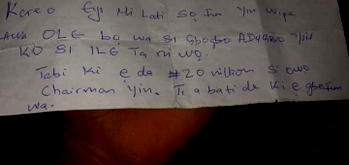 Kere o Eyi Mi Lati So fun Yin wipe
Awa OLE bo wa si Gbogbo ADUGBO Yin
KO SI ILE Ta ni wo.
Tabi Ki e da #20 million si owo
Chairman Yin. Ti a bati de Ki e gbe fun
wa.